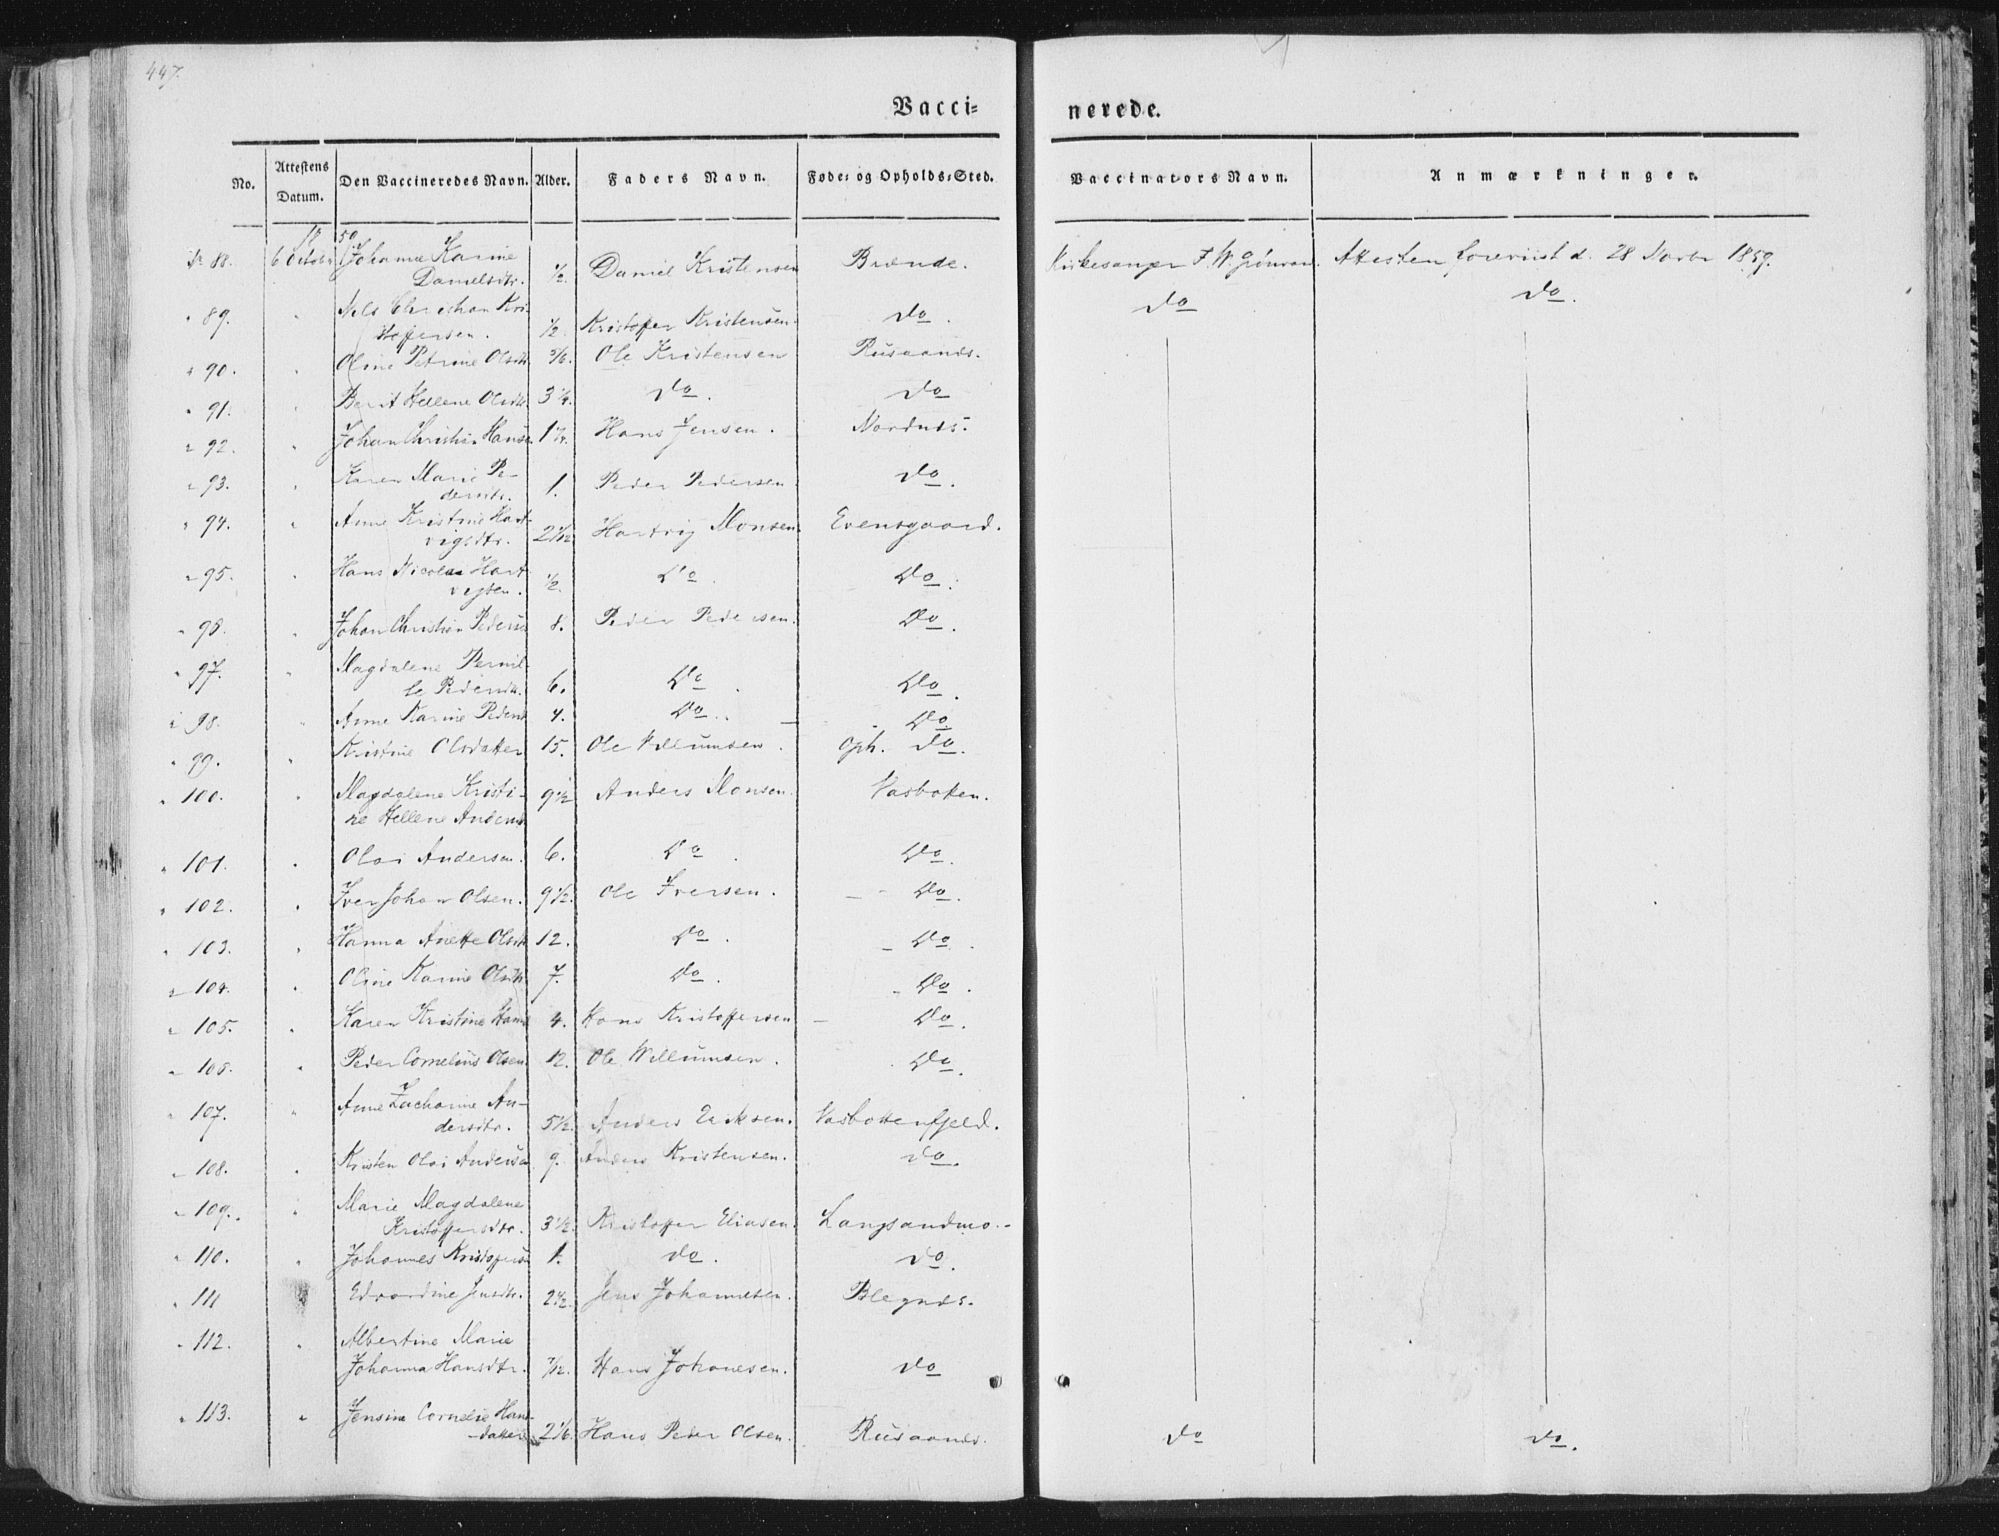 447.
Vacci= nerede.
No. Attestens Datum. Den Vaccineredes Navn. Alder. Faders Navn. Føde= og Opholds=Sted. Vaccinators Navn. Anmærkninger.
No 88. 6 October Johanna Karine Danielsdtr. 1/2. Daniel Kristensen Brænde. Kirkesanger F. W. Attesten foreviist d. 28 Novbr 1859.
" 89. " Nels Christian Kri-
stoffersen. 1/2. Kristoffer Kristensen. do. do do.
" 90. " Oline Petrine Olsdtr. 5/6. Ole Kristensen Rusaanes.
" 91. " Berit Hellene Olsdtr. 3 1/4. do. do
" 92. " Johan Christian Hansen 1 Hans Jensen. Nordnes.
" 93. " Karen Marie Pe-
dersdtr. 1. Peder Pedersen. do.
" 94. " Anne Kristine Hart-
vigsdtr. 2 1/12 Hartvig Monsen. Evensgaard.
" 95. " Hans Nicolai Hart-
vigsen. 1/2. do. do.
" 96. " Johan Christian Pedersen 8. Peder Pedersen. do.
" 97. " Magdalene Pernil-
le Pedersdtr. 6. do. do.
" 98. " Anne Karine Pedersd 4. do. do
" 99. " Kristine Olsdatter 15. Ole Willumsen. oph. do.
" 100. " Magdalene Kristi-
ne Hellene Andersd 9 1/2 Anders Monsen. Vasbotten.
" 101. " Olai Andersen. 6. do. do.
" 102. " Iver Johan Olsen. 9 1/2. Ole Iversen. - do.
" 103. " Hanna Anette Olsdtr 12. do. - do.
" 104. " Oline Karine Olsdtr. 7. do. - do.
" 105. " Karen Kristine Hansd 4. Hans Kristoffersen - do.
" 106. " Peder Cornelius Olsen. 12. Ole Willumsen. do.
" 107. " Anne Zacharine An-
dersdtr. 5 1/2. Anders Eriksen. Vasbottenfjeld.
" 108. " Kristen Olai Andersen 9. Anders Kristensen. do.
" 109. " Marie Magdalene
Kristoffersdtr. 3 1/2. Kristoffer Eliasen. Langsandmo.
" 110. " Johannes Kristoffersen 1. do. do.
" 111 Edvardine Jensdtr. 2 1/2. Jens Johannesen. Blegnes.
" 112. " Albertine Marie
Johanna Hansdtr. 7/12. Hans Johanesen. do
" 113. " Jensine Cornelie Hans-
datter 2 1/6. Hans Peder Olsen. Rusaanes. do do.